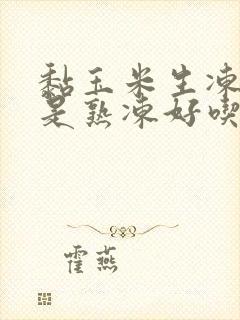 黏玉米生凍
是熟凍好喫
霍燕